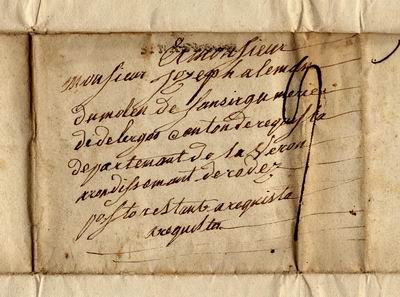 A monsieur
monsieur Joseph aleman
du molen de sansir gumerie
de delergos contonderequista
departemant de la veron
arondissemant derodez
posto restant a requista
arequista